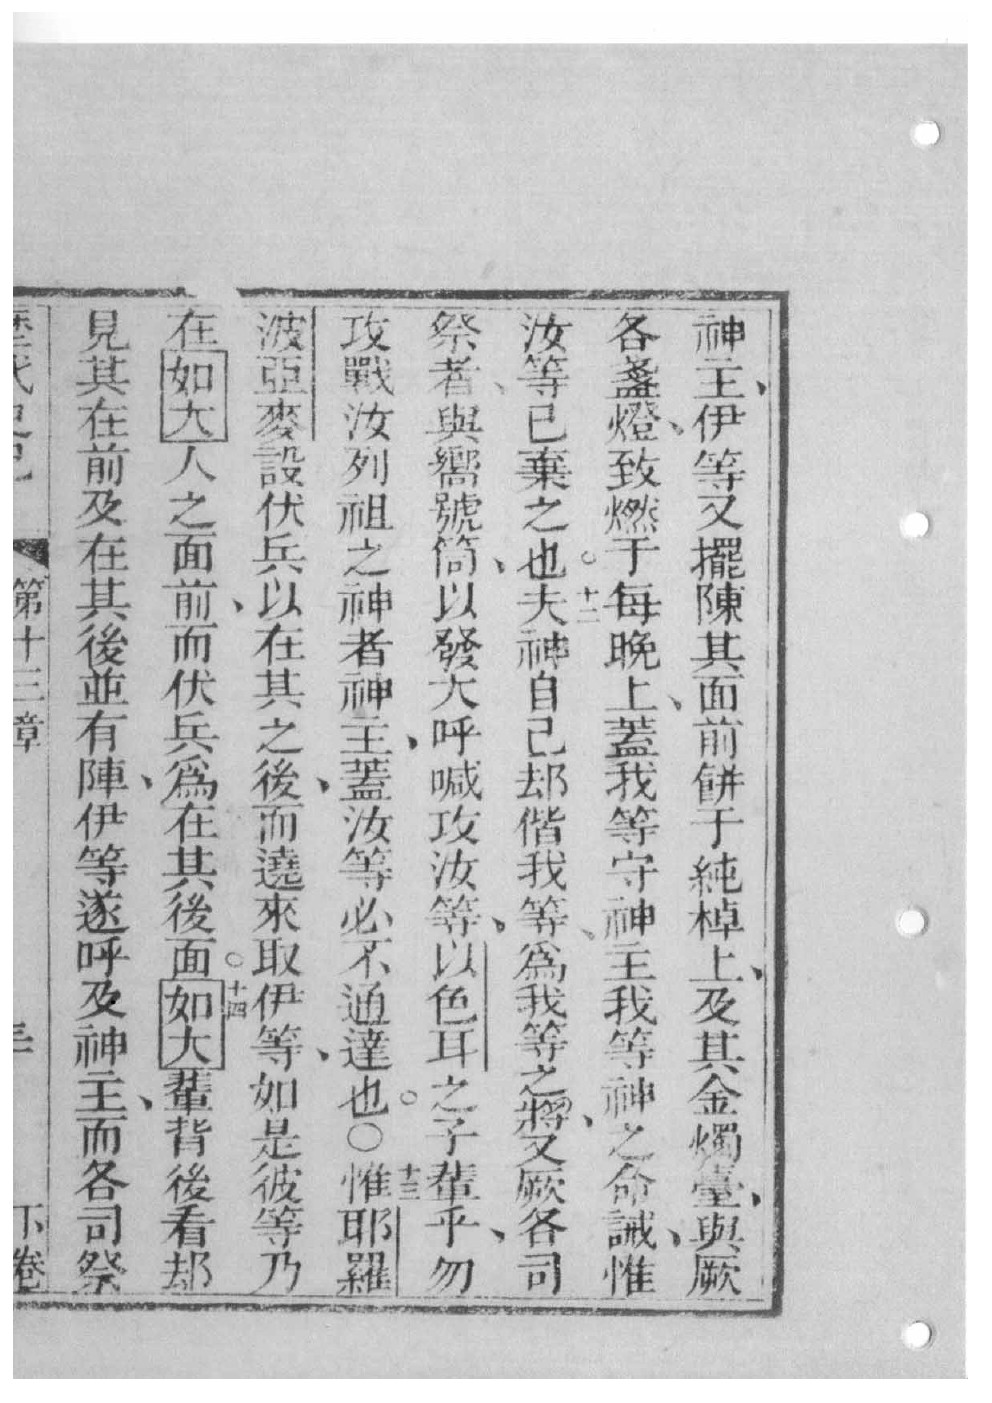 神主、伊等又擺陳其面前餅于純棹上、及其金燭臺、與厥
各盞燈、致燃于每晚上、蓋我等守神主我等神之命誡、惟
汝等已棄之也。十二夫神自己却偕我等、爲我等之將、又厥各司
祭者、與嚮號筒、以發大呼喊攻汝等、以色耳之子輩乎、勿
攻戰汝列祖之神者神主、蓋汝等必不通達也。○十三惟耶羅
波亞麥設伏兵以在其之後、而遶來取伊等、如是彼等乃
在如大人之面前、而伏兵爲在其後面。十四如大輩背後看却
見其在前及在其後並有陣、伊等遂呼及神主、而各司祭
歷代史記 第十三章 三 下卷